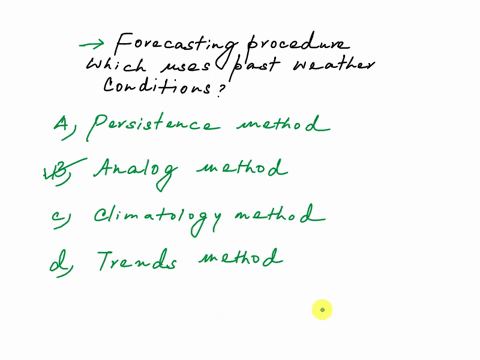 → Forecasting procedure
which uses past weather
conditions?
A, Persistence method
B, Analog method
c, Climatology method
d, Trends method